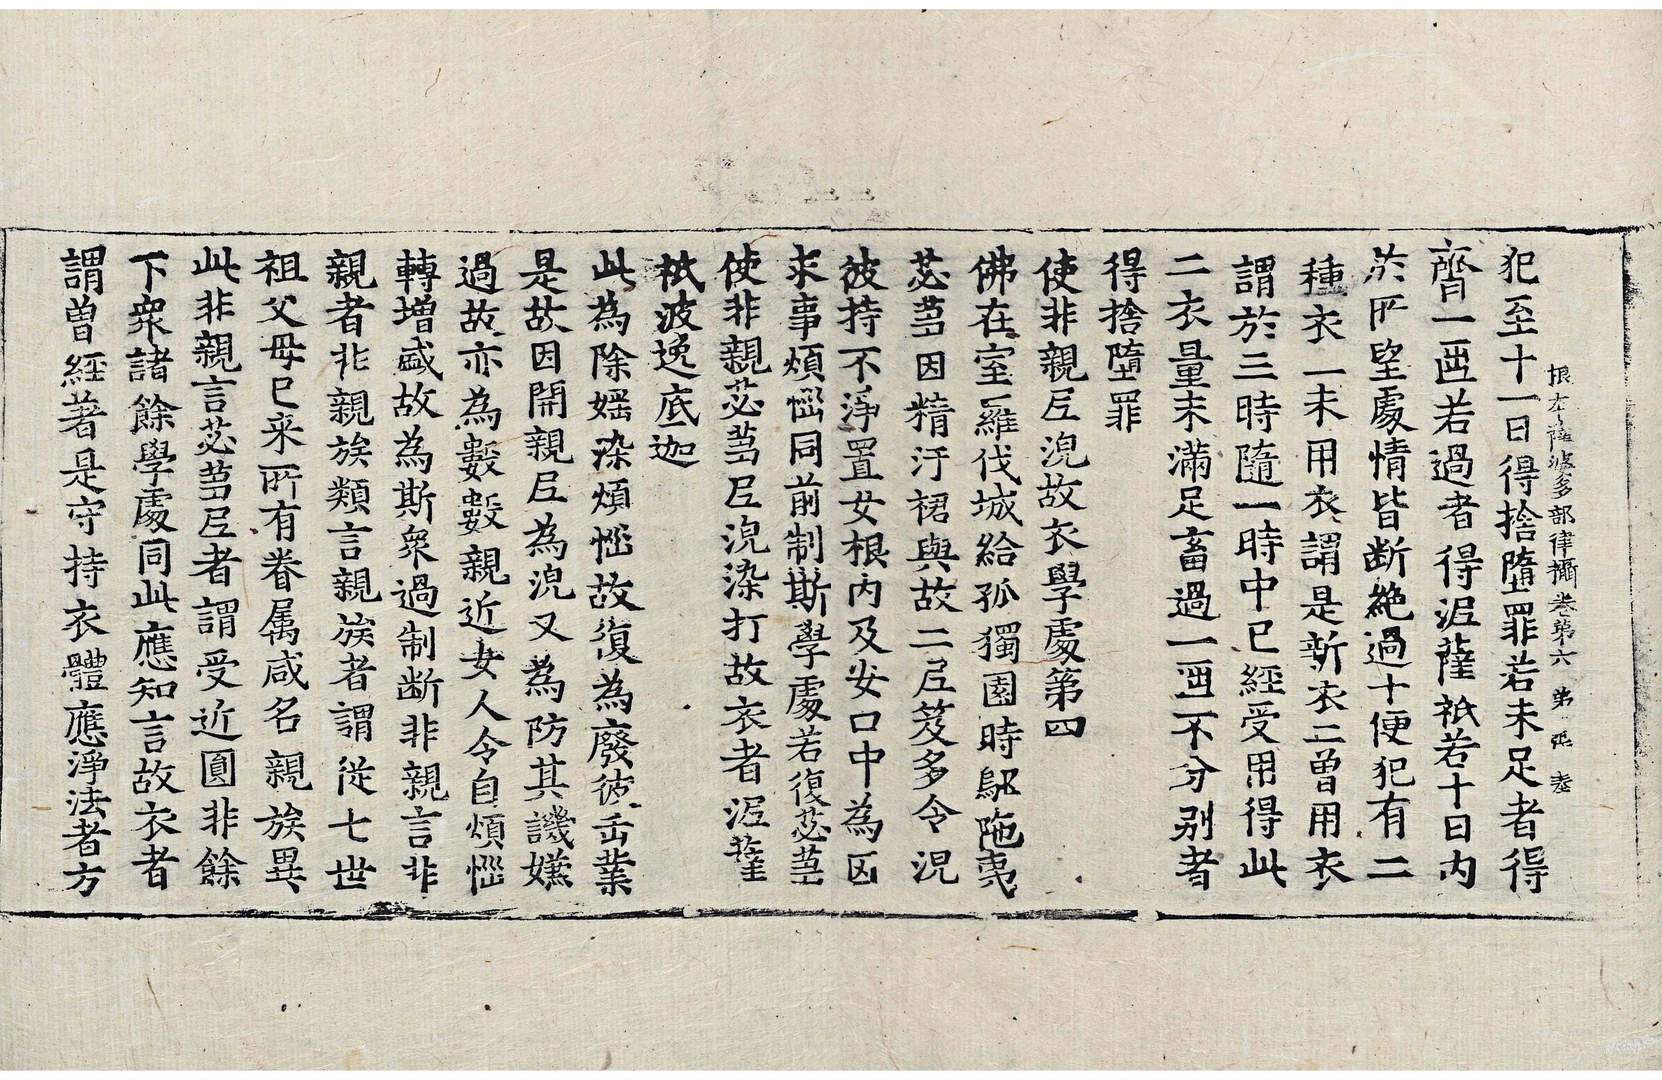 犯至十一日得捨墮罪若未足者得
根本薩婆多部律攝卷第六 第 張 孝
齊一匝若過者得泥薩祇若十日內
於所望處情皆斷絶過十便犯有二
種衣一未用衣謂是新衣二曽用衣
謂於三時隨一時中已經受用得此
二衣量未滿足畜過一匝不分別者
得捨墮罪
使非親尼浣故衣學處第四
佛在室羅伐城給孤獨園時鄔陁夷
苾芻因精汙裙與故二尼笈多令浣
彼持不淨置女根內及安口中為因
求事煩惱同前制斯學處若復苾芻
使非親苾芻尼浣染打故衣者泥薩
祇波逸底迦
此為除婬染煩惱故復為廢彼正業
是故因開親尼為浣又為防其譏嫌
過故亦為數數親近女人令自煩惱
轉增盛故為斯衆過制斷非親言非
親者非親族類言親族者謂從七世
祖父母已来所有眷属咸名親族異
此非親言苾芻尼者謂受近圓非餘
下衆諸餘學處同此應知言故衣者
謂曽經著是守持衣體應淨法者方